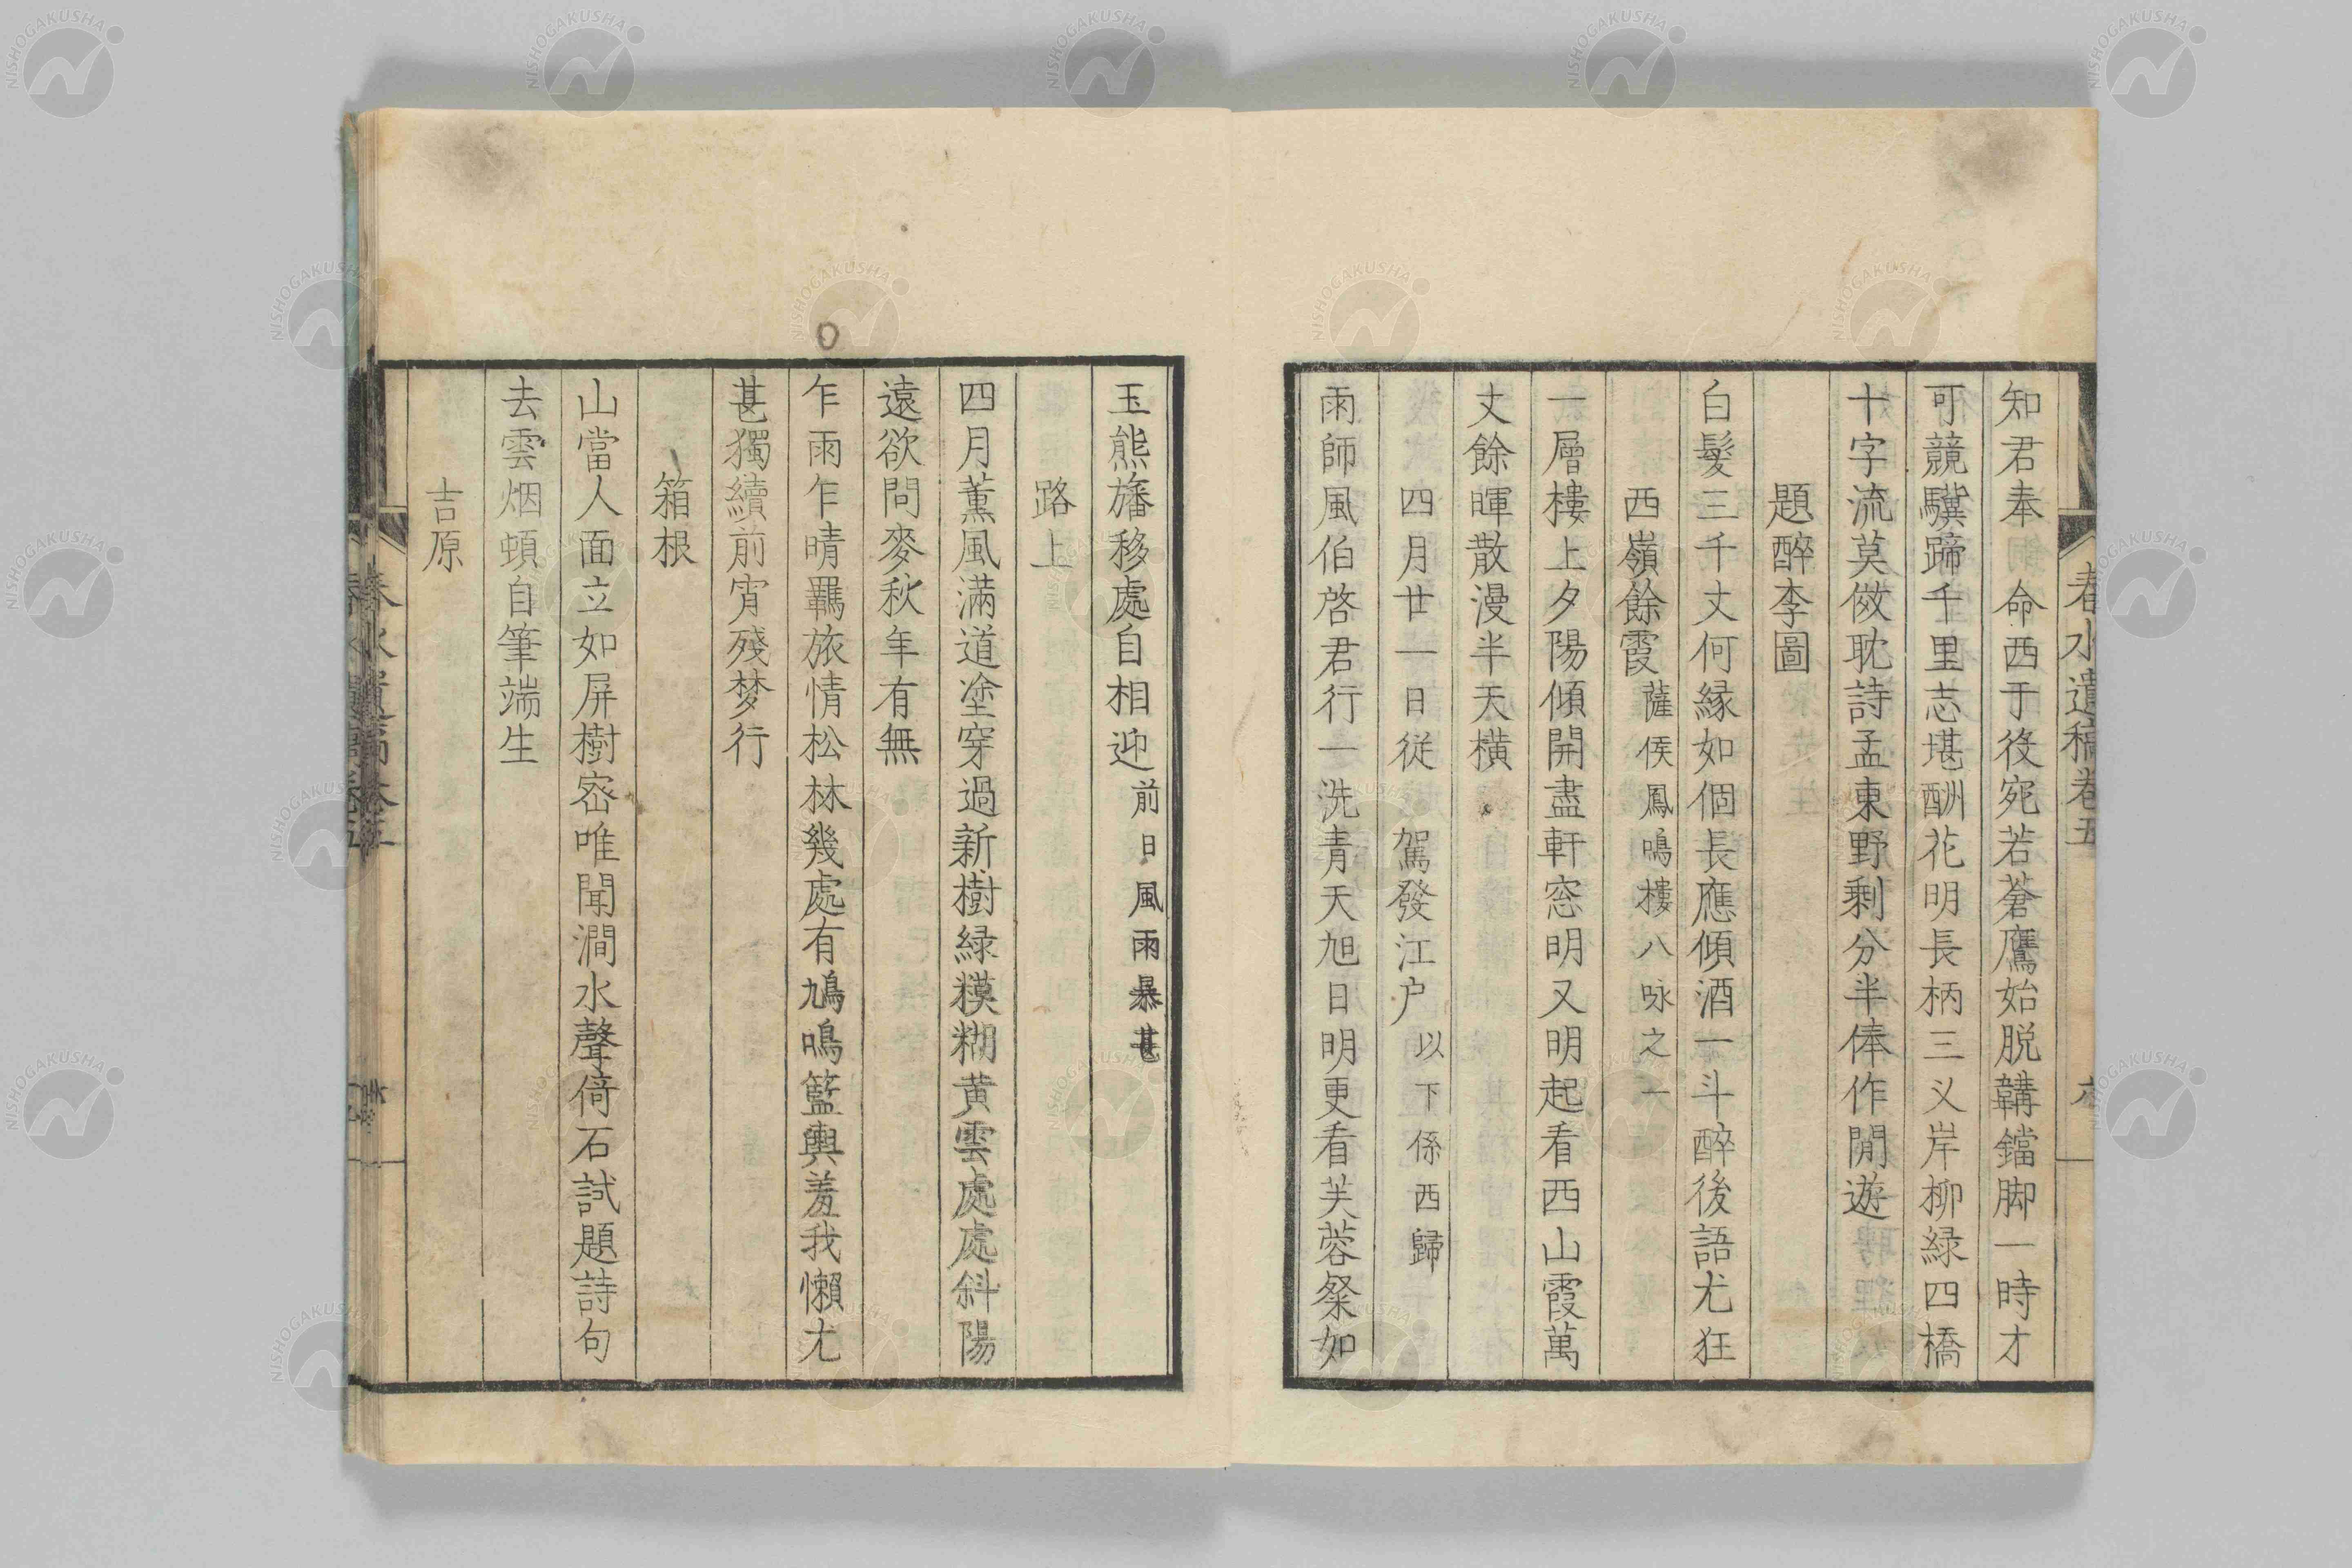 春水遺稿卷五
知君奉　命西于役宛若蒼鷹始脱鞲鐺脚一時才
可競驥蹄千里志堪酬花明長柄三义岸柳緑四橋
十字流莫倣耽詩孟東野剩分半俸作閒遊
題醉李圖
白髮三千丈何縁如個長應傾酒一斗醉後語尤狂
西嶺餘霞薩侯鳳鳴樓八咏之一
一層樓上夕陽傾開盡軒窓明又明起看西山霞萬
丈餘暉散漫半天横
四月廿一日從　駕發江户以下係西歸
雨師風伯啓君行一洗青天旭日明更看芙蓉粲如
玉熊旛移處自相迎前日風雨暴甚
路上
四月薰風滿道塗穿過新樹緑糢糊黄雲處處斜陽
遠欲問麥秋年有無
乍雨乍晴羈旅情松林幾處有鳩鳴籃輿羞我懶尤
甚獨續前宵殘梦行
箱根
山當人面立如屏樹宻唯聞澗水聲倚石試題詩句
去雲烟頓自筆端生
吉原
NISHOGAKUSHA